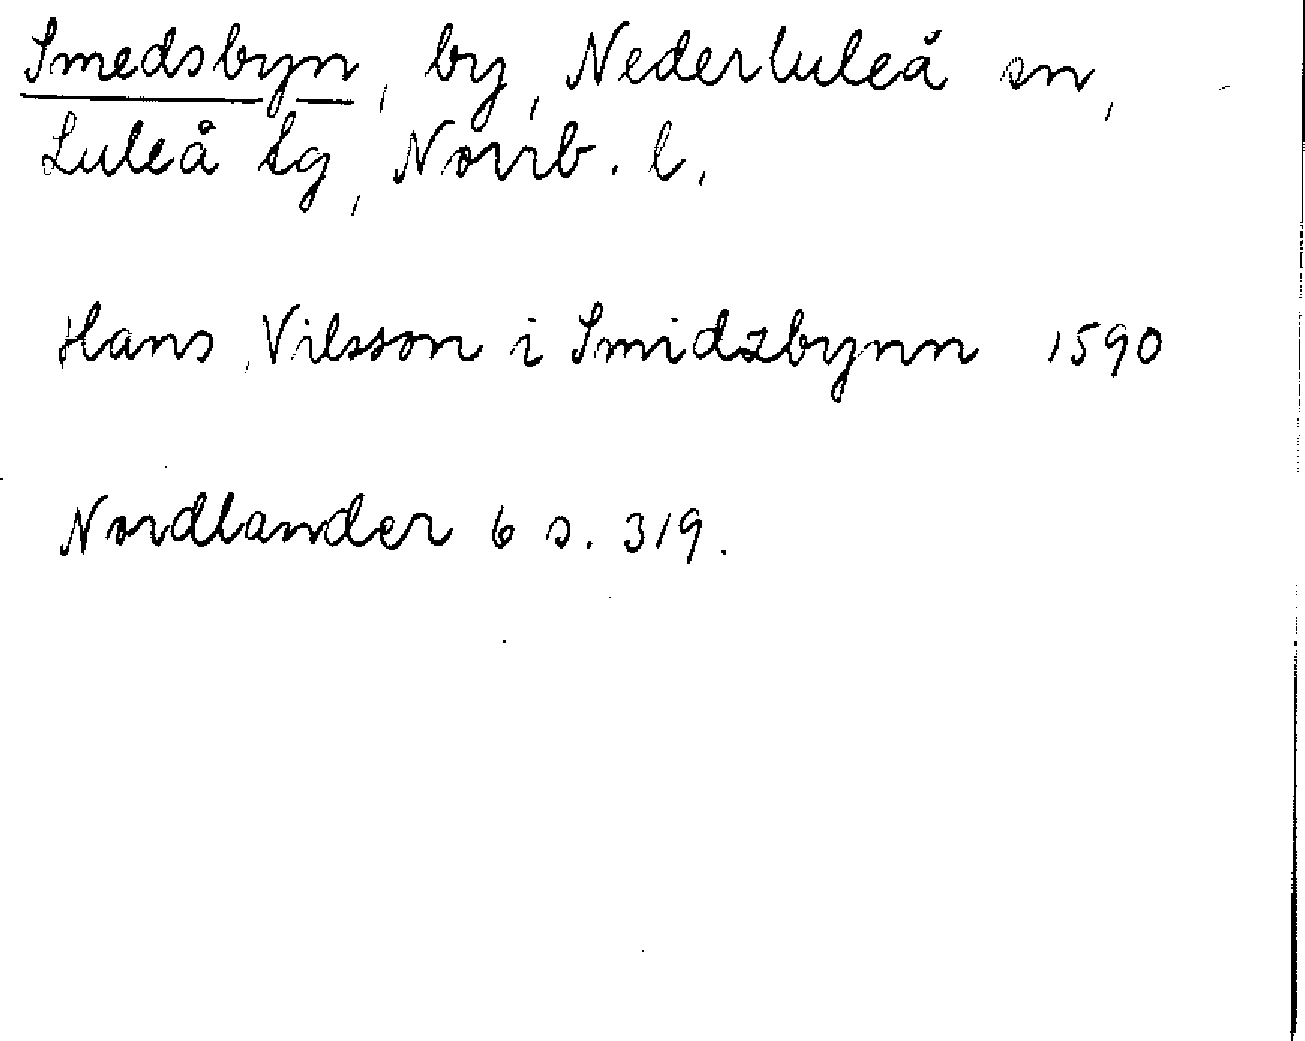 Smedsbyn, by, Nederluleå sn,
Luleå tg, Norrb. l.
Hans Nilsson i Smidzbynn 1590
Nordlander 6 s. 319.